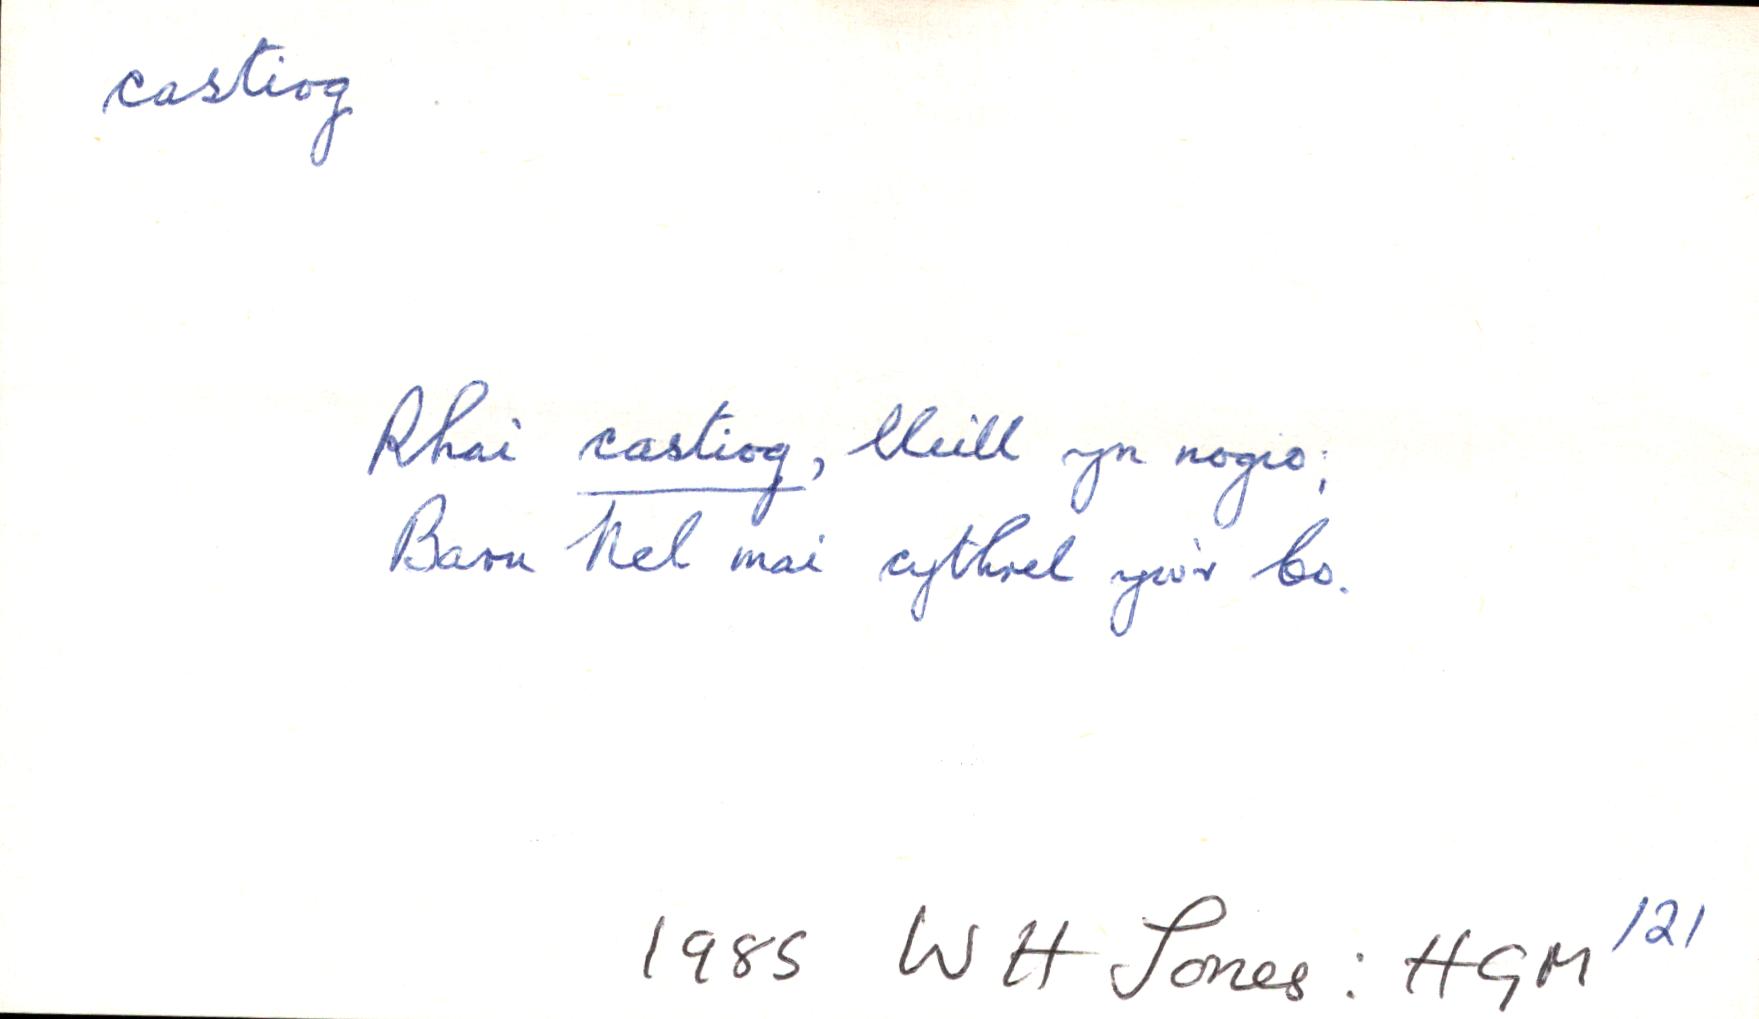 castiog
Rhai castiog, lleill yn nogio;
Barn Nel mai cythrel yw'r co.
1985 W H Jones: HGM 121